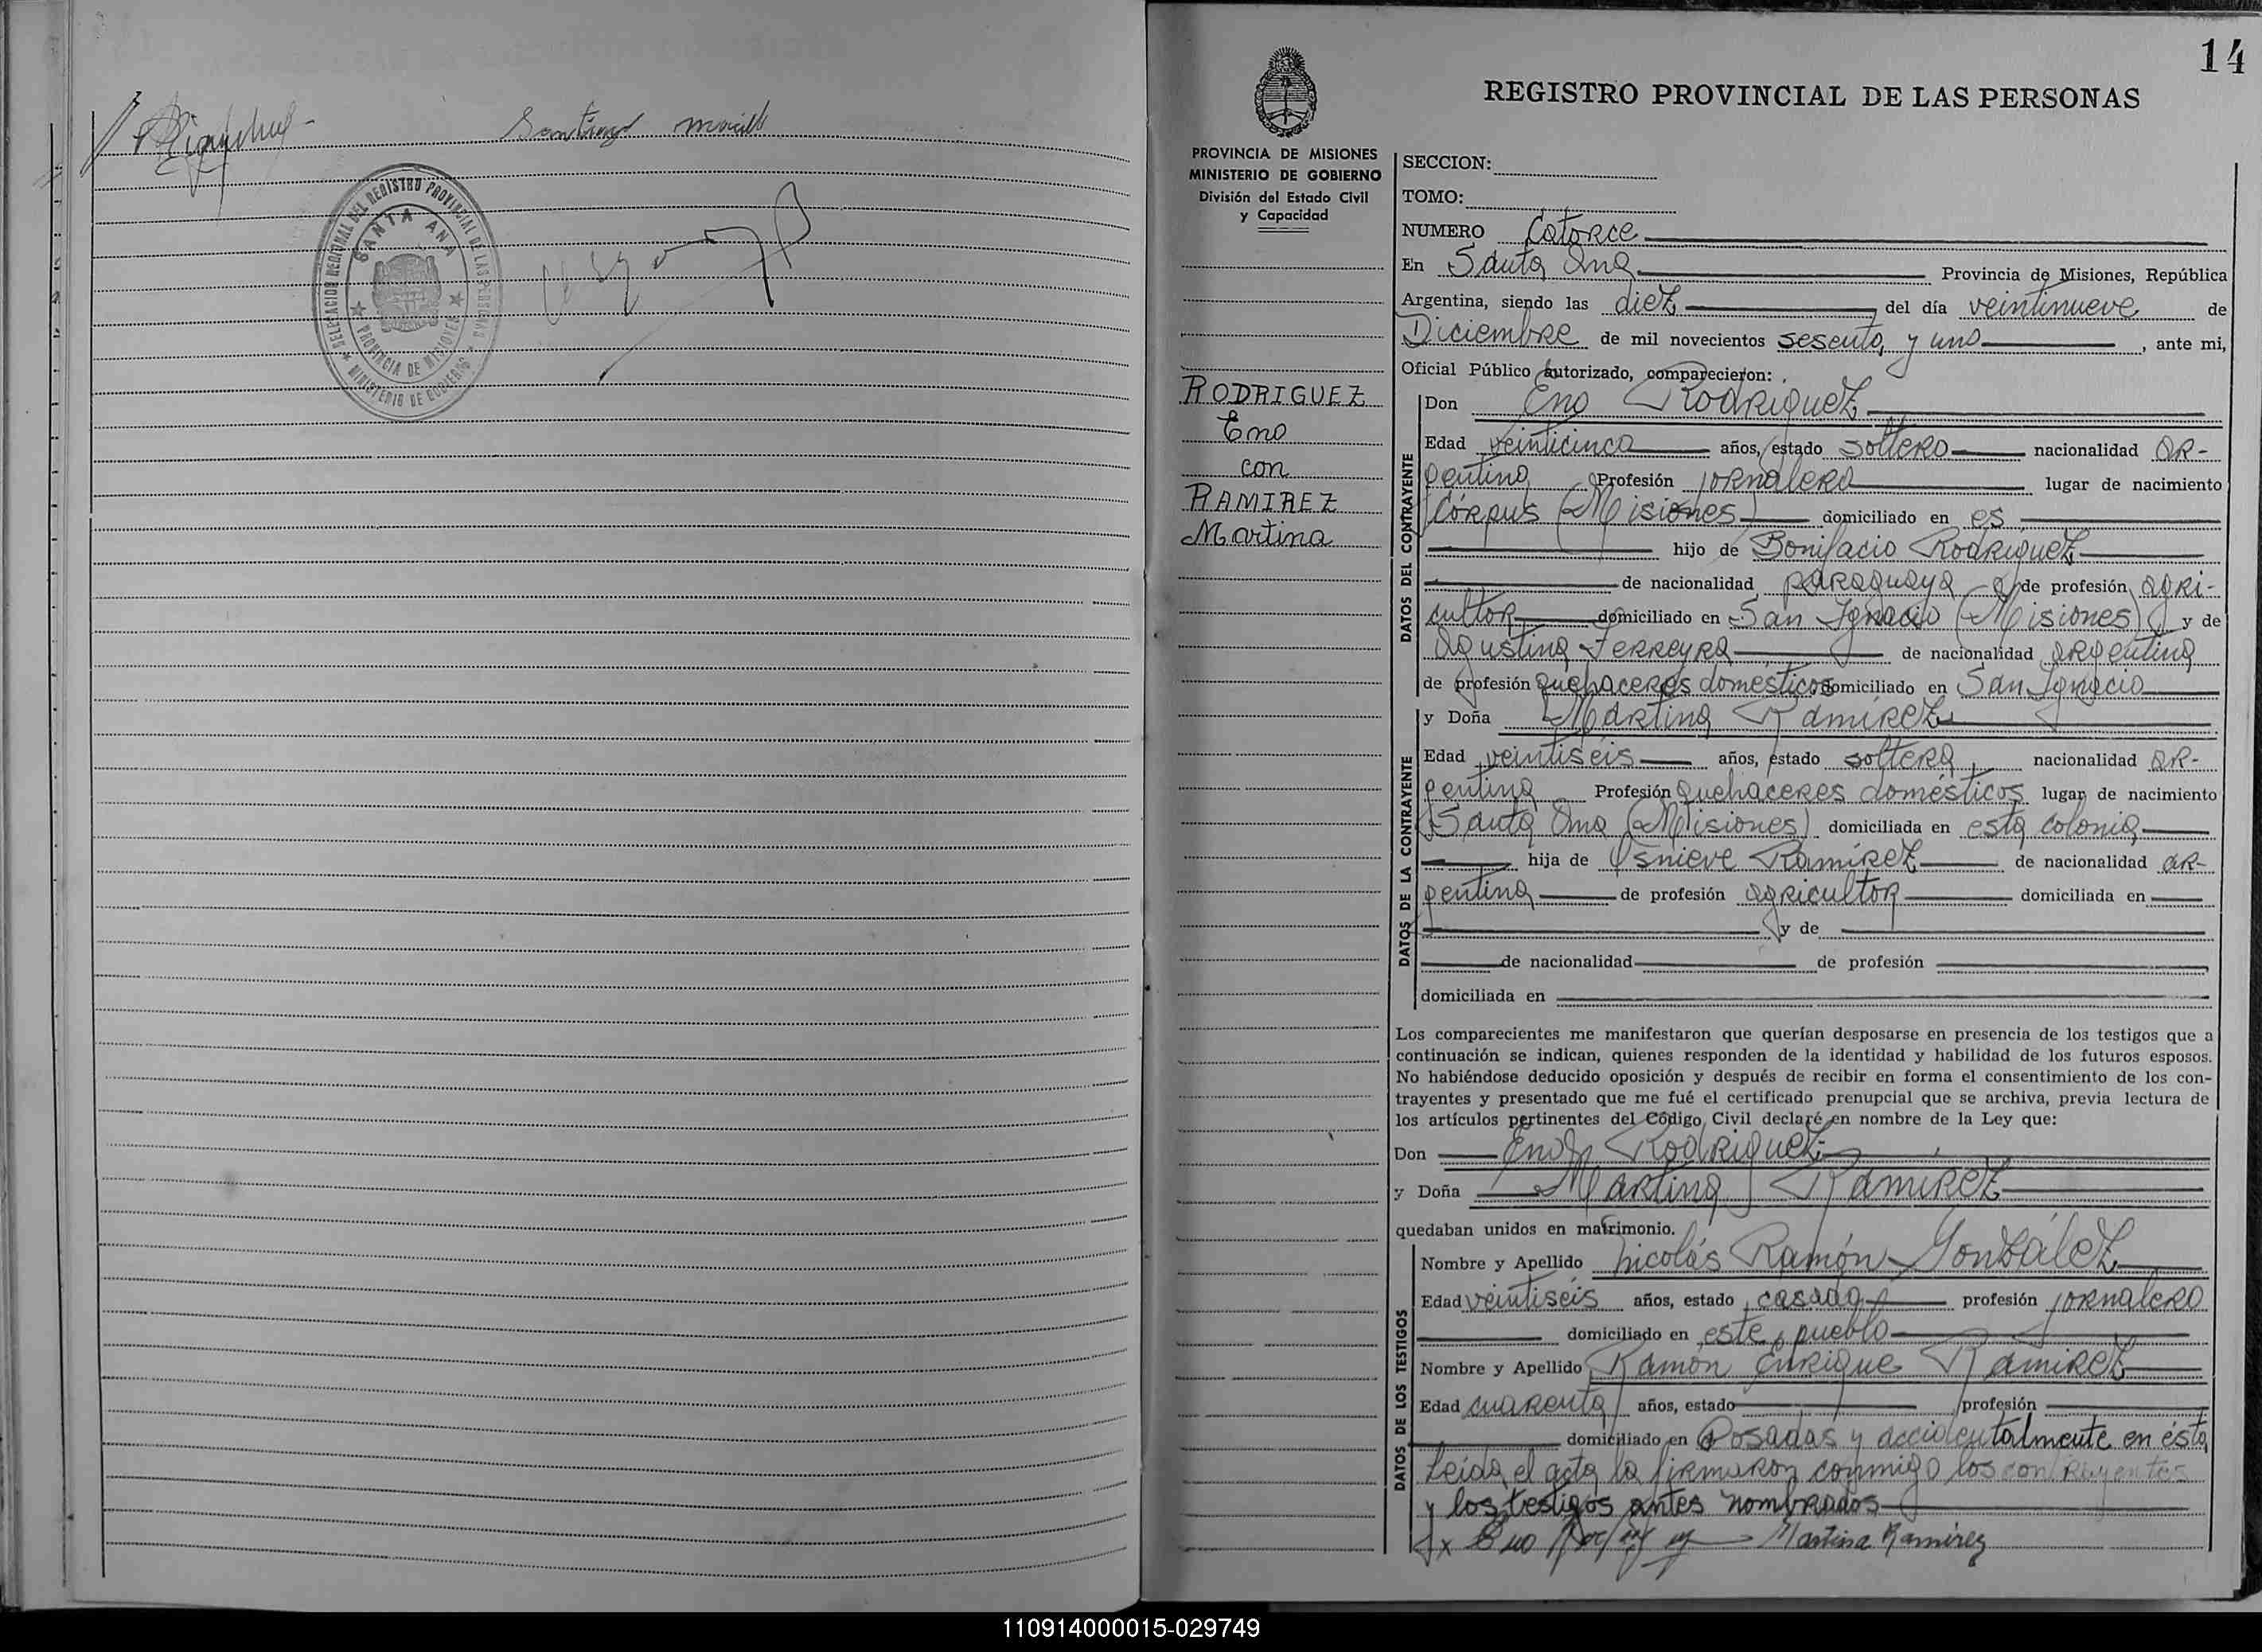 Santiago
DELEGACION REGIONAL DEL REGISTRO PROVINCIAL DE LAS PERSONAS
SANTA ANA
PROVINCIA DE MISIONES
MINISTERIO DE GOBIERNO
14
REGISTRO PROVINCIAL DE LAS PERSONAS
PROVINCIA DE MISIONES
MINISTERIO DE GOBIERNO
División del Estado Civil
y Capacidad
RODRIGUEZ
Eno
con
RAMIREZ
Martina
SECCION:
TOMO:
NUMERO Catorce
En Santa Ana Provincia de Misiones, República
Argentina, siendo las diez del día veintinueve de
Diciembre de mil novecientos sesenta y uno, ante mi,
Oficial Público autorizado, comparecieron:
DATOS DEL CONTRAYENTE
Don Eno Rodriguez
Edad veinticinco años, estado soltero nacionalidad ar-
gentina Profesión jornalero lugar de nacimiento
Córpus (Misiones) domiciliado en es
hijo de Bonifacio Rodriguez
de nacionalidad paraguaya de profesión agri-
cultor domiciliado en San Ignacio (Misiones) y de
Agustina Ferreyra de nacionalidad argentina
de profesión quehaceres domésticos domiciliado en San Ignacio
DATOS DE LA CONTRAYENTE
y Doña Martina Ramírez
Edad veintiseis años, estado soltera nacionalidad ar-
gentina Profesión quehaceres domésticos lugar de nacimiento
Santa Ana (Misiones) domiciliada en esta colonia
hija de Ramírez de nacionalidad ar-
gentina de profesión agricultor domiciliada en
y de
de nacionalidad de profesión
domiciliada en
Los comparecientes me manifestaron que querían desposarse en presencia de los testigos que a
continuación se indican, quienes responden de la identidad y habilidad de los futuros esposos.
No habiéndose deducido oposición y después de recibir en forma el consentimiento de los con-
trayentes y presentado que me fué el certificado prenupcial que se archiva, previa lectura de
los artículos pertinentes del Código Civil declaré en nombre de la Ley que:
Don Eno Rodriguez
y Doña Martina Ramírez
quedaban unidos en matrimonio.
DATOS DE LOS TESTIGOS
Nombre y Apellido Nicolás Ramón González
Edad veintiséis años, estado casado profesión jornalero
domiciliado en este pueblo
Nombre y Apellido Ramón Enrique Ramirez
Edad cuarenta años, estado profesión
domiciliado en Posadas y accidentalmente en ésta
Leída el acta la firmaron conmigo los contrayentes
y los testigos antes nombrados
Eno Martina Ramírez
110914000015-029749